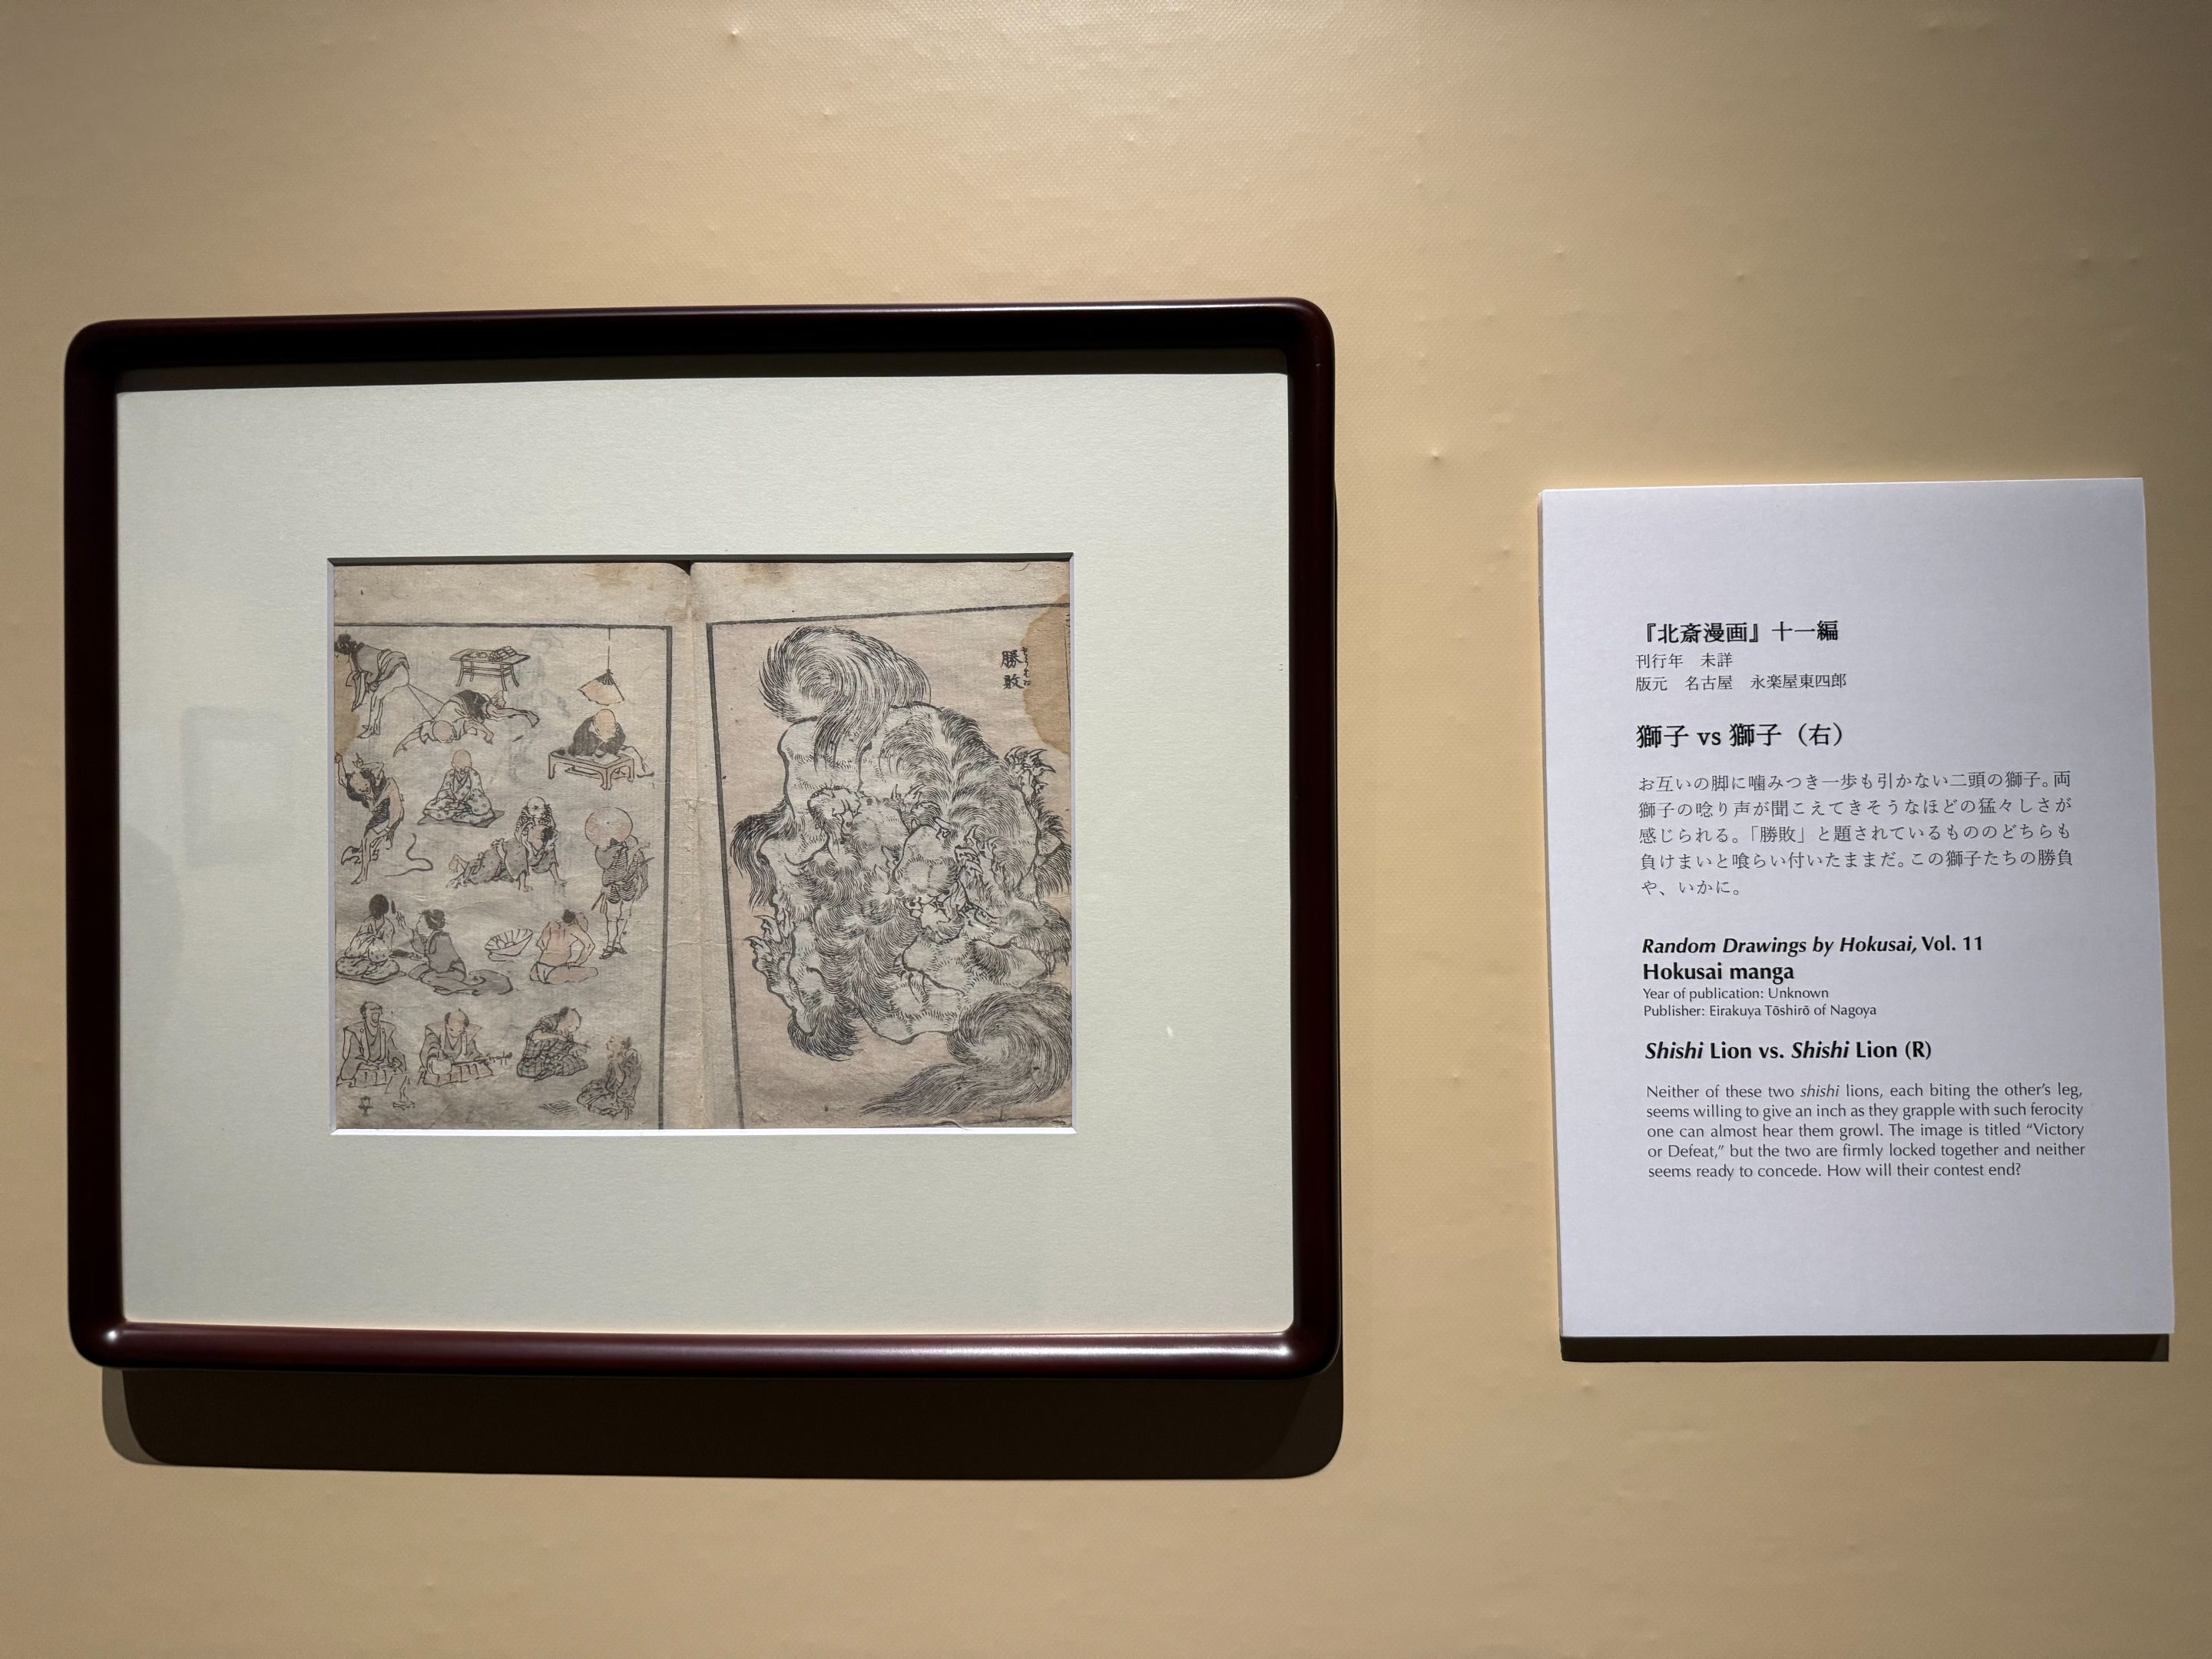 勝敗
『北斎漫画』十一編
刊行年　未詳
版元　名古屋　永楽屋東四郎
獅子 vs 獅子（右）
お互いの脚に噛みつき一歩も引かない二頭の獅子。両
獅子の唸り声が聞こえてきそうなほどの猛々しさが
感じられる。「勝敗」と題されているもののどちらも
負けまいと喰らい付いたままだ。この獅子たちの勝負
や、いかに。
Random Drawings by Hokusai, Vol. 11
Hokusai manga
Year of publication: Unknown
Publisher: Eirakuya Tōshirō of Nagoya
Shishi Lion vs. Shishi Lion (R)
Neither of these two shishi lions, each biting the other's leg,
seems willing to give an inch as they grapple with such ferocity
one can almost hear them growl. The image is titled “Victory
or Defeat,” but the two are firmly locked together and neither
seems ready to concede. How will their contest end?